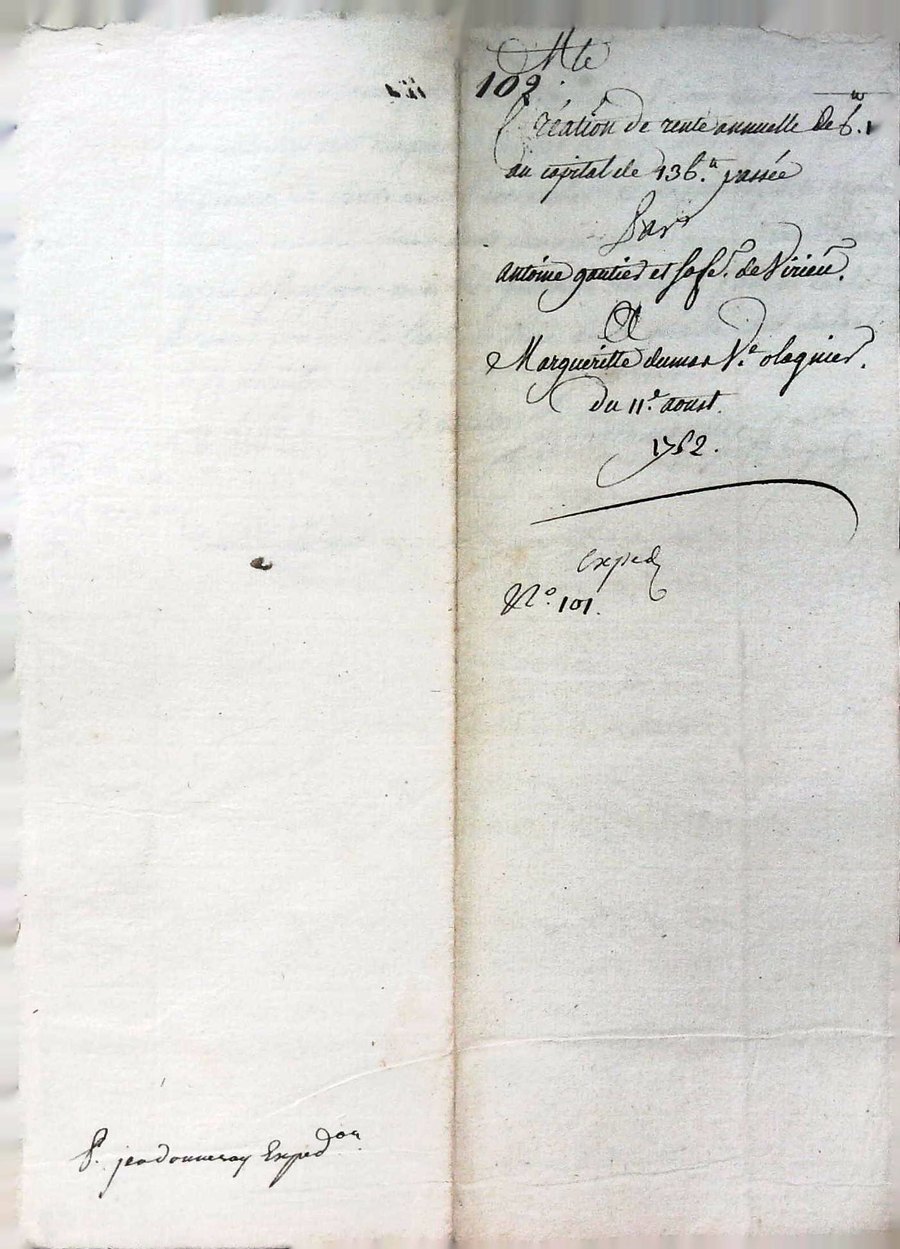 Mte
102.
Création de rente annuelle de 6.tt 1
au capital de 136.tt passée
Par
antoine gautier et sa fe. de Virieu.
A
Margueritte dumas Ve. olagnier.
du 11e. aoust.
1762.
exped
No. 101.
Expedon